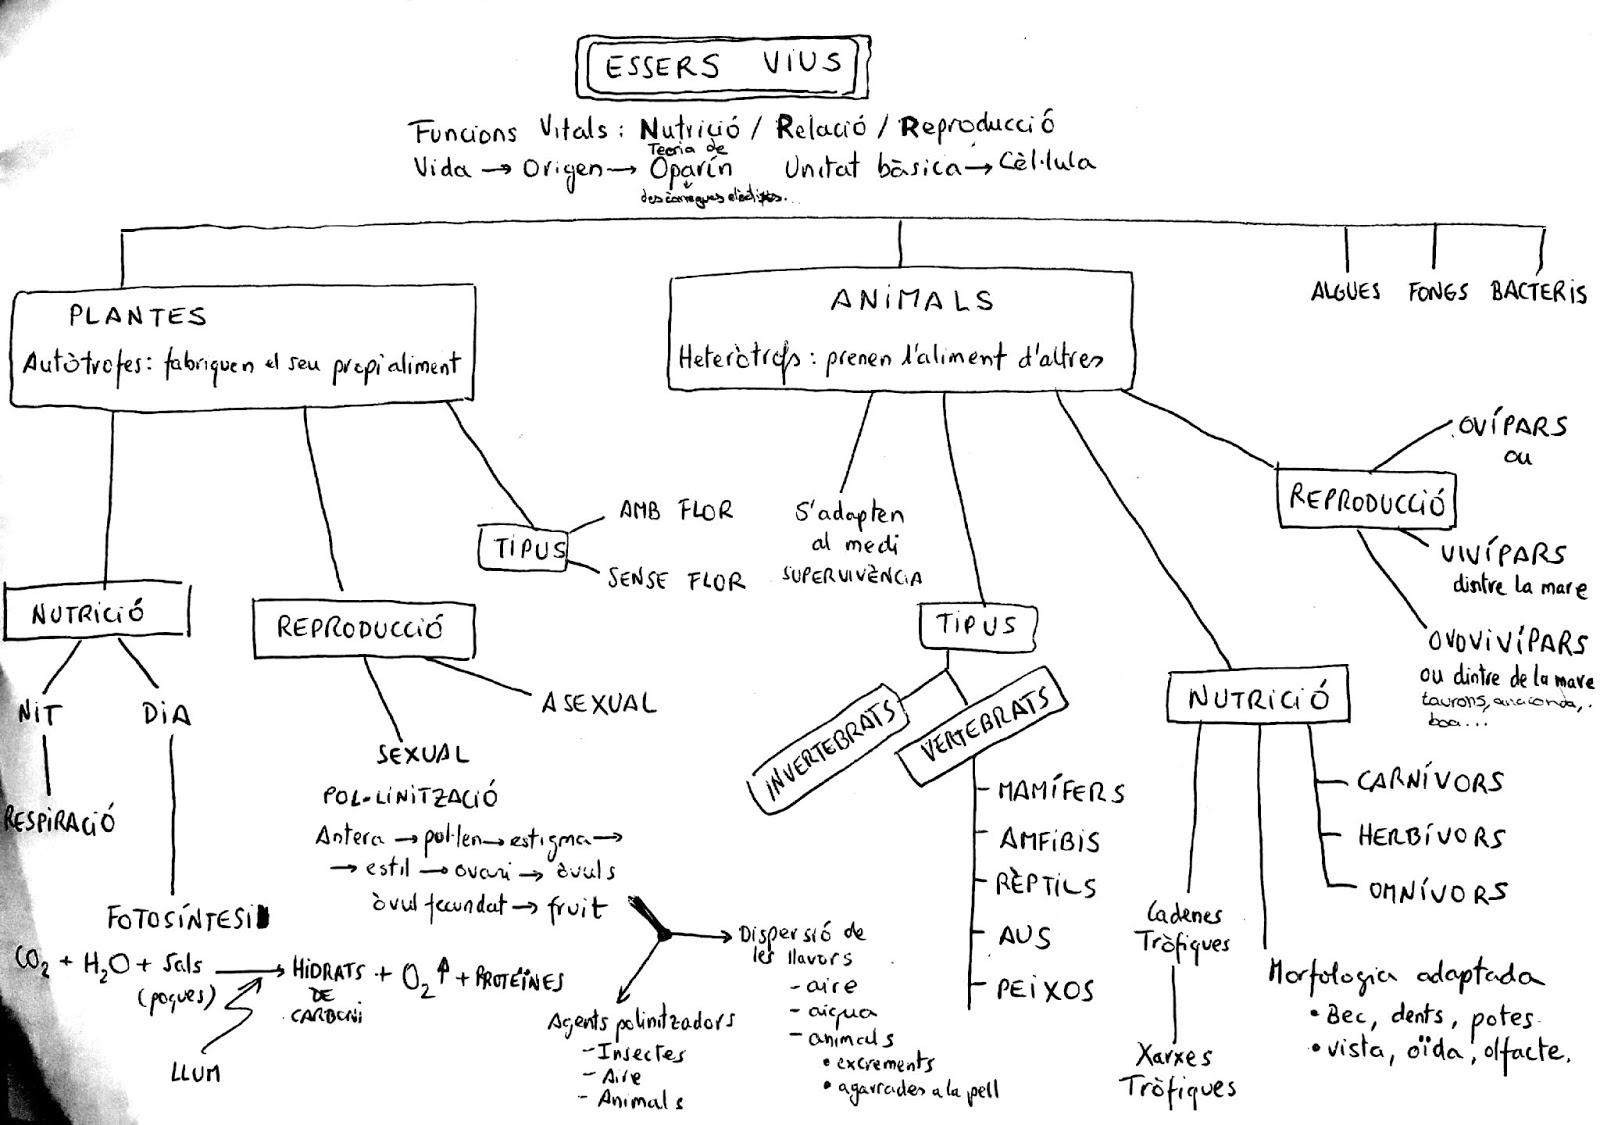 ESSERS VIUS
Funcions Vitals : Nutrició / Relació / Reproducció
Vida → Origen → Teoria de Oparín Unitat bàsica → Cèl·lula
descàrregues elèctriques...
PLANTES
Autòtrofes: fabriquen el seu propi aliment
ANIMALS
Heteròtrofs : prenen l'aliment d'altres
ALGUES FONGS BACTERIS
NUTRICIÓ
NIT DIA
RESPIRACIÓ
FOTOSÍNTESI
CO2 + H2O + Sals (poques) → HIDRATS DE CARBONI + O2 ↑ + PROTEÏNES
LLUM
REPRODUCCIÓ
ASEXUAL
SEXUAL
POL·LINITZACIÓ
Antera → pol·len → estigma →
→ estil → ovari → òvuls
òvul fecundat → fruit
Agents polinitzadors
- Insectes
- Aire
- Animals
Dispersió de
les llavors
- aire
- aigua
- animals
• excrements
• agarrades a la pell
TIPUS
AMB FLOR
SENSE FLOR
S'adapten
al medi
SUPERVIVÈNCIA
TIPUS
INVERTEBRATS
VERTEBRATS
- MAMÍFERS
- AMFIBIS
- RÈPTILS
- AUS
- PEIXOS
NUTRICIÓ
Cadenes
Tròfiques
Xarxes
Tròfiques
Morfologia adaptada
• Bec, dents, potes.
• vista, oïda, olfacte.
CARNÍVORS
HERBÍVORS
OMNÍVORS
REPRODUCCIÓ
OVÍPARS
ou
VIVÍPARS
dintre la mare
OVOVIVÍPARS
ou dintre de la mare
taurons, anaconda,
boa...